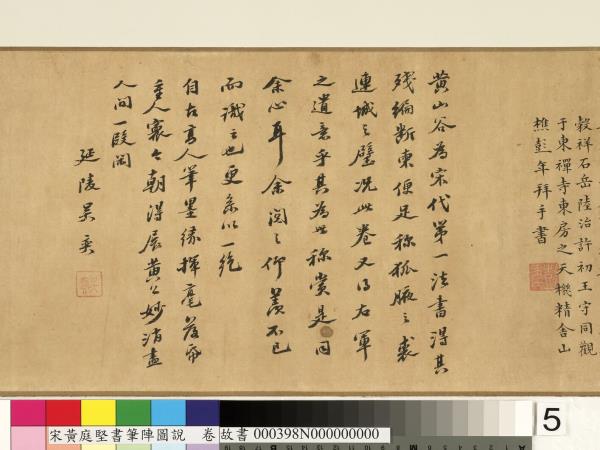 穀祥石岳陸治許初王守同觀
于東禪寺東房之天機精舍山
樵彭年拜手書
黄山谷為宋代第一法書得其
殘編斷柬便足称狐腋之裘
連城之璧况此卷又得右軍
之遺意乎其為世称賞是固
余心耳余閱之仰羨不已
而識之也更系以一絶
自古高人筆墨緣揮毫落帋
重人寰今朝得展黄公妙消盡
人间一段閒
延陵吴奕
宋黃庭堅書筆陣圖說 卷 故書 000398N000000000
5